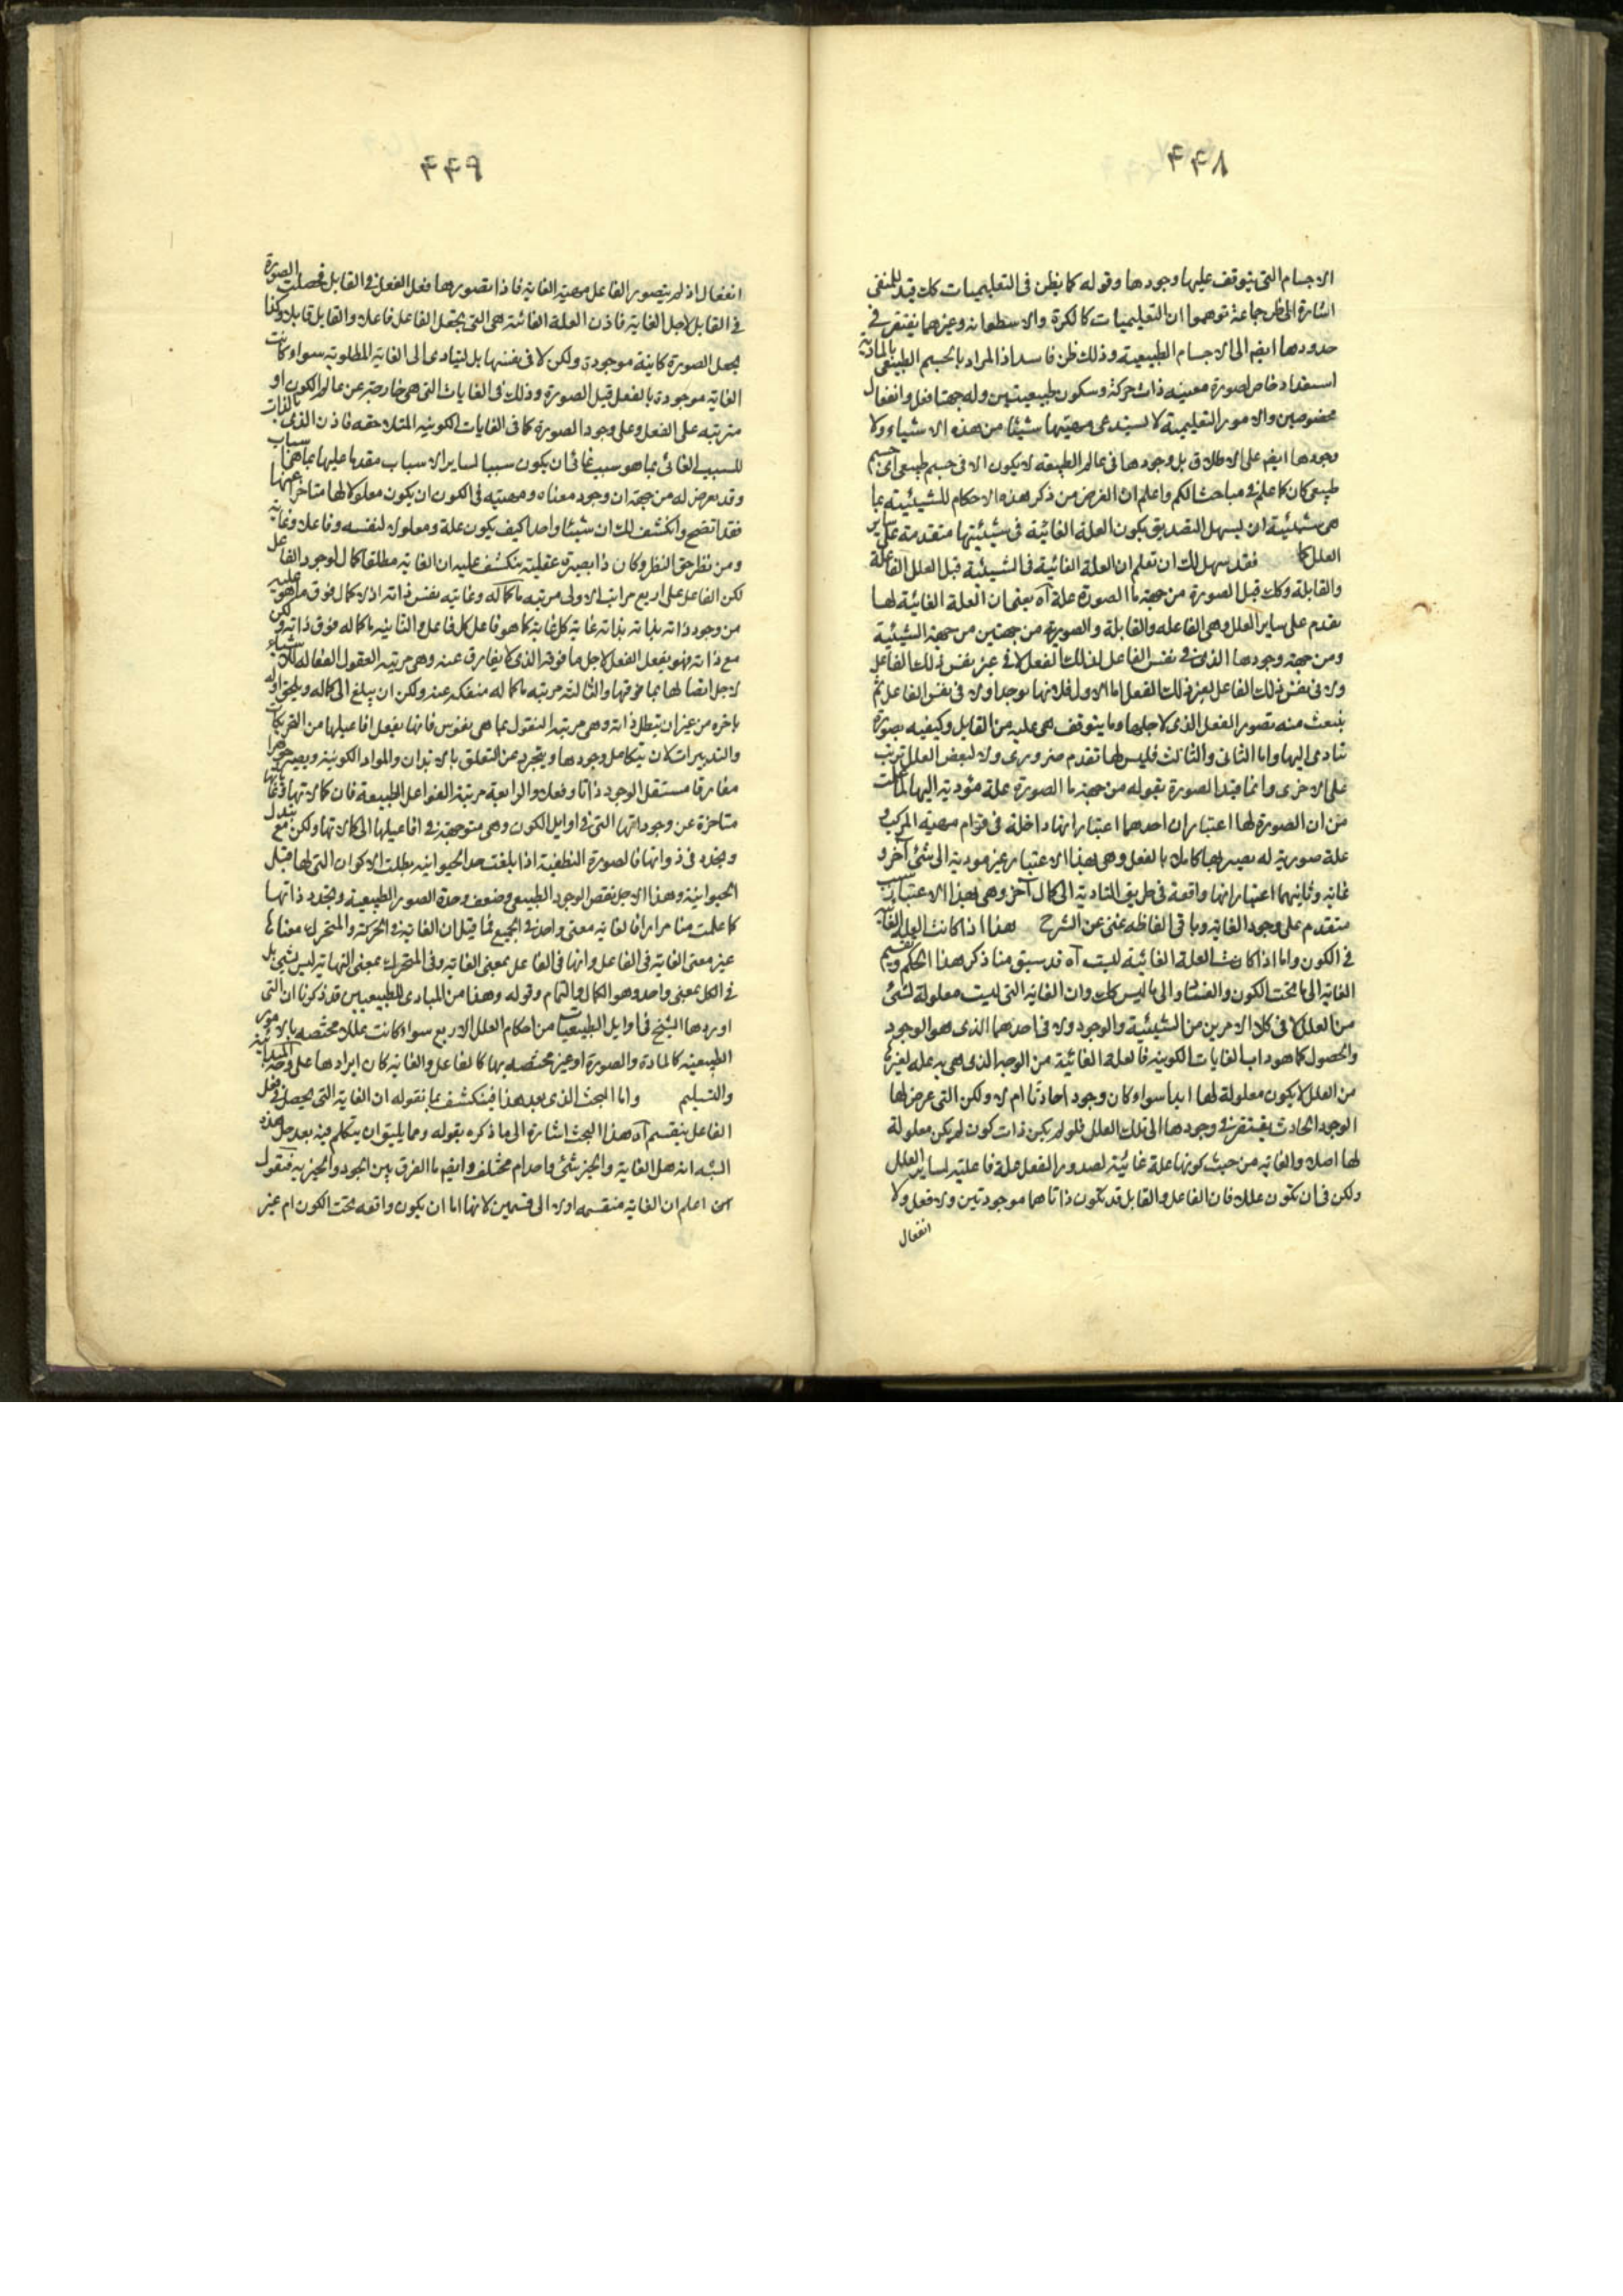 ۴۴۸
الاجسام التى يتوقف عليها وجودها وقوله كما يظن فى التعليميات كك قيد للمنفى
اشارة الى ظن جماعة توهموا ان التعليميات كالكرة والاسطوانه وغيرهما يفتقر فى
حدودها ايضم الى الاجسام الطبيعية وذلك ظن فاسد اذ المراد بالجسم الطبيعى بالمادية
استعداد خاص لصورة معينه ذات حركة وسكون طبيعيتين وله جهتا فعل وانفعال
مخصوصين والامور التعليمية لا يستدعى مهيتها شيئا من هذه الاشياء ولا
وجودها ايضم على الاطلاق بل وجودها فى عالم الطبيعه لا يكون الا فى جسم طبيعى اى جسم
طبيعى كان كما علم فى مباحث الكم واعلم ان الغرض من ذكر هذه الاحكام للشيئية بما
هى شيئية ان يسهل التصديق بكون العلة الغائية فى شيئيتها متقدمة على ساير
العلل كما فقد سهل لك ان تعلم ان العلة الغائية فى الشيئية قبل العلل الفاعلة
والقابلة وكك قبل الصورة من جهة ما الصورة علة آه يعنى ان العلة الغائية لها
تقدم على ساير العلل وهى الفاعله والقابلة والصورية من جهتين من جهة الشيئية
ومن جهة وجودها الذى فى نفس الفاعل لذلك الفعل لا فى غير نفس ذلك الفاعل
ولا فى نفس ذلك الفاعل لغير ذلك الفعل اما الاول فلانها توجد اولا فى نفس الفاعل ثم
ينبعث منه تصور الفعل الذى لاجلها وما يتوقف هى عليه من القابل وكيفيه صورة
تتادى اليها واما الثانى والثالث فليس لها تقدم ضرورى ولا لبعض العلل ترتيب
على الاخرى وانما قيد الصورة بقوله من جهة ما الصورة علة مؤدية اليها لما علمت
من ان الصورة لها اعتباران احدهما اعتبار انها داخلة فى قوام مهيه المركب و
علة صورية له يصير بها كاملا بالفعل وهى بهذا الاعتبار غير مودية الى شئ آخر و
غايه وثانيهما اعتبار انها واقعة فى طريق التادية الى كمال آخر وهى بهذا الاعتبار سبب
متقدم على وجود الغايه وباقى الفاظه غنى عن الشرح هذا اذا كانت العلة الغائية
فى الكون واما اذا كانت العلة الغائية ليست آه قد سبق منا ذكر هذا الحكم وتقسيم
الغاية الى ما تحت الكون والفساد والى ما ليس كك وان الغايه التى ليست معلولة لشئ
من العلل لا فى كلا الامرين من الشيئية والوجود ولا فى احدهما الذى هو الوجود
والحصول كما هو داب الغايات الكونيه فالعلة الغائية من الوجه الذى هى به علة لغيرها
من العلل لا يكون معلولة لها ابدا سواء كان وجود احادثا ام لا ولكن التى عرض لها
الوجود الحادث يفتقر فى وجودها الى تلك العلل فلو لم يكن ذات كون لم يكن معلولة
لها اصلا والغايه من حيث كونها علة غائية لصدور الفعل علة فاعليه لساير العلل
ولكن فى ان تكون عللا فان الفاعل والقابل قد تكون ذاتاهما موجودتين ولا فعل ولا
انفعال
۴۴۹
انفعال اذ لم يتصور الفاعل مهية الغاية فاذا تصورها فعل الفعل فى القابل فحصلت الصورة
فى القابل لاجل الغاية فاذن العلة الغائية هى التى يجعل الفاعل فاعلا والقابل قابلا وكذا
يجعل الصورة كاينة موجودة ولكن لا فى نفسها بل ليتادى الى الغاية المطلوبة سواء كانت
الغاية موجودة بالفعل قبل الصورة وذلك فى الغايات التى هى خارجة عن عالم الكون او
مترتبه على الفعل وعلى وجود الصورة كما فى الغايات الكونيه المتلاحقه فاذن الذى بالذات
للسبب الغائى بما هو سبب غائى ان يكون سببا لساير الاسباب مقدما عليها بما هى اسباب
وقد يعرض له من جهة ان وجود معناه ومهيته فى الكون ان يكون معلولا لها متاخرا عنها
فقد اتضح وانكشف لك ان شيئا واحدا كيف يكون علة ومعلولا لنفسه وفاعلا وغاية
ومن نظر حق النظر وكان ذا بصيرة عقلية ينكشف عليه ان الغاية مطلقا كمال لوجود الفاعل
لكن الفاعل على اربع مراتب الاولى مرتبه ما كماله وغايته بنفس ذاته اذ لا كمال فوق ما هو عليه
من وجود ذاته بذاته بذاته غاية كل غاية كما هو فاعل كل فاعل والثانيه ما كماله فوق ذاته ولكن
مع ذاته فهو يفعل الفعل لاجل ما فوقه الذى لا يفارق عنه وهى مرتبه العقول الفعاله للاشياء
لاجل اتصالها بما فوقها والثالثة مرتبه ما كماله منفكه عنه ولكن ان يبلغ الى كماله ويلحق اوله
باخره من غير ان يبطل ذاته وهى مرتبه النفوس بما هى نفوس فانها يفعل افاعيلها من التحريكات
والتدبيرات لان يتكامل وجودها ويتجرد عن التعلق بالابدان والمواد الكونية ويصير جوهرا
مفارقا مستقل الوجود ذاتا وفعلا والرابعة مرتبه الفواعل الطبيعة فان كمالاتها وغاياتها
متاخرة عن وجوداتها التى فى اوايل الكون وهى متوجهة فى افاعيلها الى كمالاتها ولكن مع تبدل
وتجدد فى ذواتها فالصورة النطفية اذا بلغت حد الحيوانيه بطلت الاكوان التى لها قبل
الحيوانية وهذا لاجل نقص الوجود الطبيعى وضعف وحدة الصور الطبيعية وتجدد ذاتها
كما علمت منا مرارا فالغايه معنى واحد فى الجميع فما قيل ان الغاية فى الحركة والمتحرك معناها
غير معنى الغاية فى الفاعل وانها فى الفاعل بمعنى الغايه وفى المتحرك بمعنى النهاية ليس بشئ بل
فى الكل بمعنى واحد وهو الكمال والتمام وقوله وهذا من المبادى للطبيعيين قد ذكرنا ان التى
اوردها الشيخ فى اوايل الطبيعيات من احكام العلل الاربع سواء كانت عللا مختصه بالامور
الطبيعيه كالمادة والصورة او غير مختصه بها كالفاعل والغاية كان ايرادها على وجه المبدائية
والتسليم واما البحث الذى بعد هذا فينكشف بما نقوله ان الغاية التى يحصل فى فعل
الفاعل ينقسم آه هذا البحث اشارة الى ما ذكره بقوله ومما يليق ان يتكلم فيه بعد حل هذه
الشبه انه هل الغاية والخير شئ واحد ام مختلف وايضم ما الفرق بين الجود والخيريه فنقول
اعلم ان الغاية منقسمه اولا الى قسمين لانها اما ان يكون واقعه تحت الكون ام غير